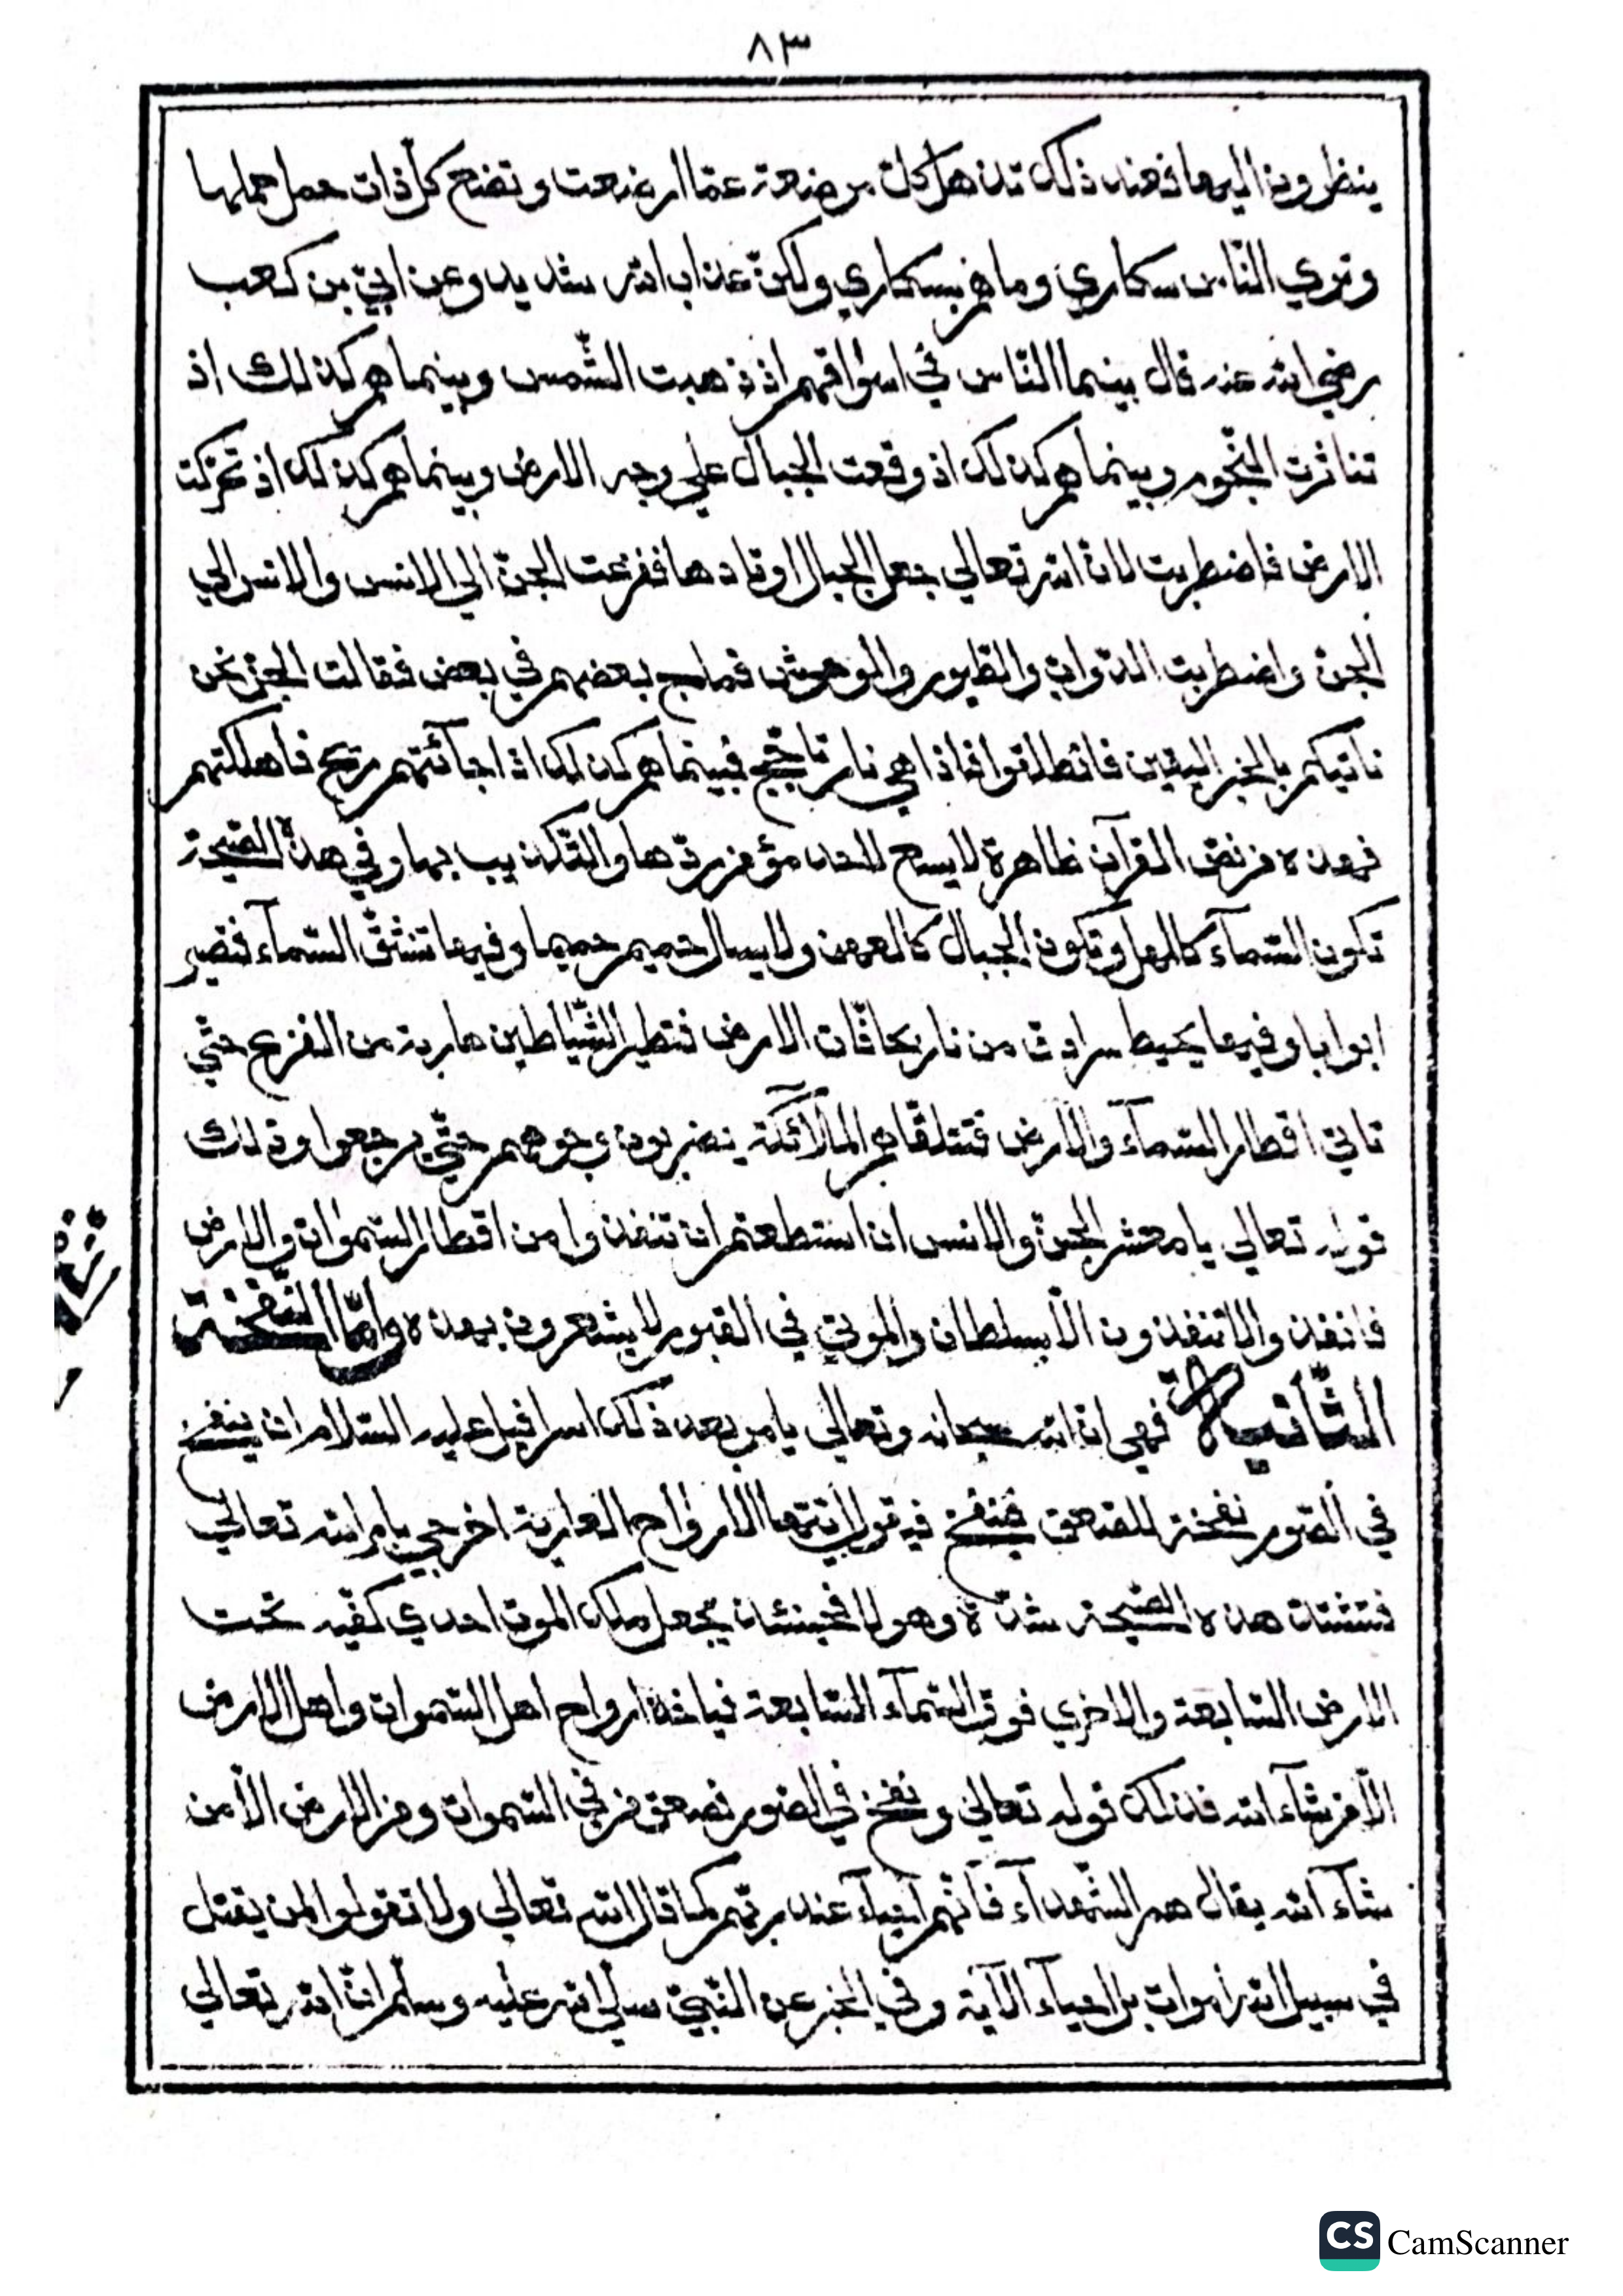 ٨٣
ينظرون اليها فعند ذلك تذهل كل مرضعة عمّا ارضعت وتضع كلّ ذات حمل حملها
وتري النّاس سكاري وما هم بسكاري ولكنّ عذاب الله شديد وعن ابيّ بن كعب
رضي الله عنه قال بينما النّاس في اسواقهم اذ ذهبت الشّمس وبينما هم كذلك اذ
تناثرت النّجوم وبينما هم كذلك اذ وقعت الجبال علي وجه الارض وبينما هم كذلك اذ تحرّكت
الارض فاضطربت لانّ الله تعالي جعل الجبال اوتادها ففزعت الجنّ الي الانس والانس الي
الجنّ واضطربت الدّوابّ والطّيور والوحوش فماج بعضهم في بعض فقالت الجنّ نحن
ناتيكم بالخبر اليقين فانطلقوا فاذا هي نار تاجّج فبينما هم كذلك اذ اجائتهم ريح فاهلكتهم
فهذه من نصّ القرآن ظاهرة لا يسع لاحد مؤمن ردّها والتّكذيب بها وفي هذه الصّيحة
تكون السّمآء كالمهل وتكون الجبال كالعهن ولا يسال حميم حميما وفيها تنشقّ السّمآء فتصير
ابوابا وفيها يحيط سرادق من نار بحافّات الارض فتطير الشّياطين هاربة من الفزع حتّي
تاتي اقطار السّمآء والارض فتتلقّاهم الملآئكة يضربون وجوههم حتّي يرجعوا وذلك
قوله تعالي يا معشر الجنّ والانس ان استطعتم ان تنفذوا من اقطار السّموات والارض
فانفذوا لا تنفذون الّا بسلطان والموتي في القبور لا يشعرون بهذه وامّا النّفخة
الثّانية فهي انّ الله سبحانه وتعالي يامر بعد ذلك اسرافيل عليه السّلام ان ينفخ
في الصّور نفخة الصّعق فينفخ فيقول ايّتها الارواح العارية اخرجي بامر الله تعالي
فتشتدّ هذه الصّيحة شدّة وهولا فحينئذ يجعل ملك الموت احدي كفّيه تحت
الارض السّابعة والاخري فوق السّمآء السّابعة فياخذ ارواح اهل السّموات واهل الارض
الّا من شآء الله فذلك قوله تعالي ونفخ في الصّور فصعق من في السّموات ومن الارض الّا من
شآء الله يقال هم الشّهدآء فانّهم احيآء عند ربّهم كما قال الله تعالي ولا تقولوا لمن يقتل
في سبيل الله اموات بل احيآء الآية وفي الخبر عن النّبيّ صلّي الله عليه وسلّم انّ الله تعالي
CS CamScanner